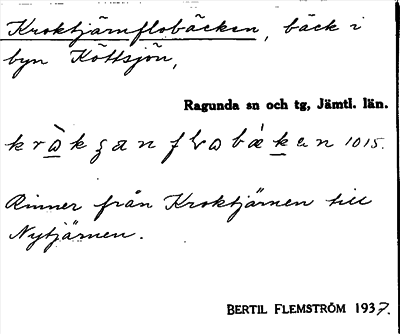 Kroktjärnflobäcken, bäck i
byn Köttsjön,
Ragunda sn och tg, Jämtl. län.
1015.
Rinner från Kroktjärnen till
Nytjärnen.
BERTIL FLEMSTRÖM 1937.